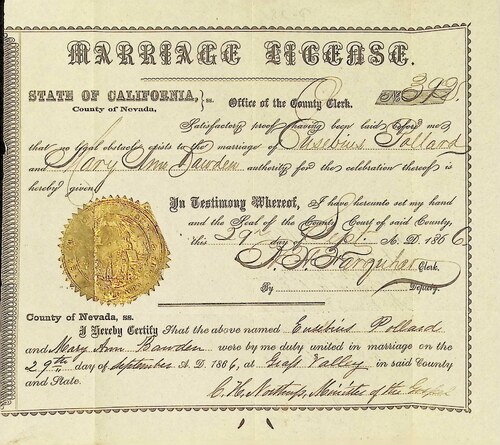 MARRIAGE LICENSE.
STATE OF CALIFORNIA, } ss.
County of Nevada,
Office of the County Clerk.
No 392
Satisfactory proof having been laid before me
that no legal obstacle exists to the marriage of Eusebius Pollard
and Mary Ann Bawden authority for the celebration thereof is
hereby given
In Testimony Whereof, I have hereunto set my hand
and the Seal of the County Court of said County,
this 29th day of Sept. A. D. 1866.
Farquhar Clerk.
By Deputy.
County of Nevada, ss.
I Hereby Certify That the above named Eusibius Pollard
and Mary Ann Bawden were by me duly united in marriage on the
29th day of September A. D. 1866, at Grass Valley in said County
and State.
C. H. Northup, Minister of the Gospel